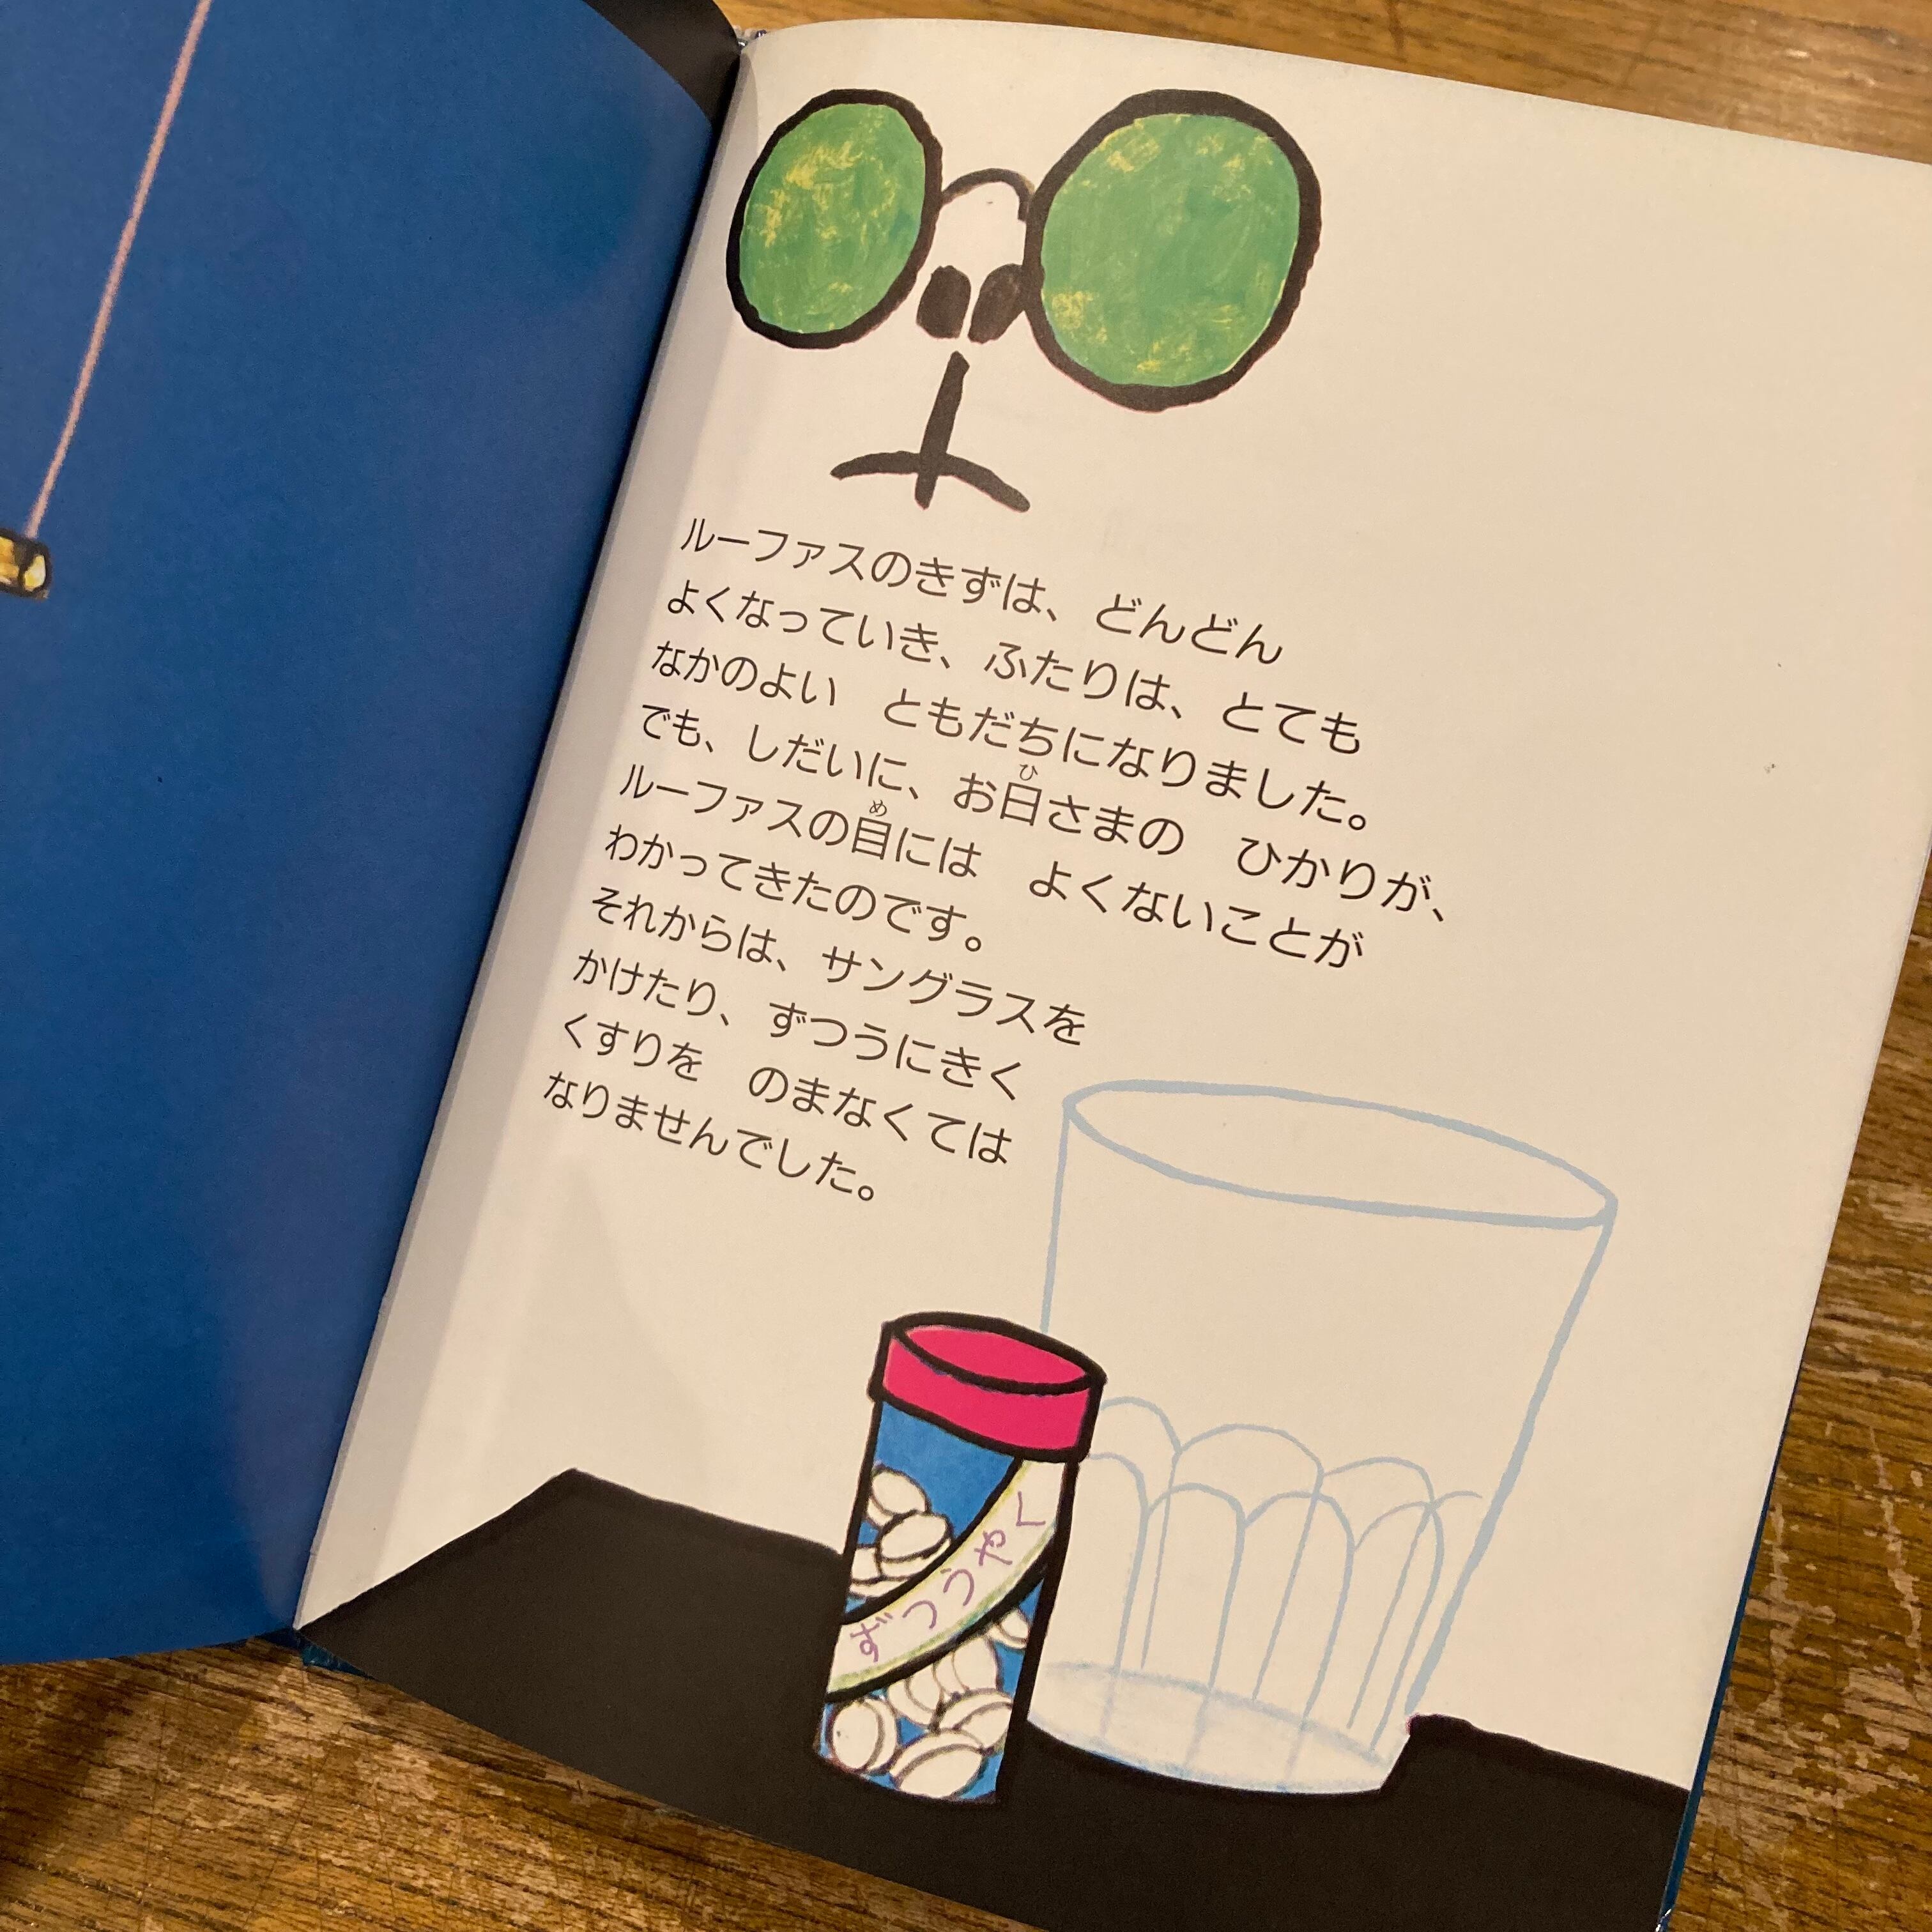 ルーファスのきずは、どんどん
よくなっていき、ふたりは、とても
なかのよい　ともだちになりました。
でも、しだいに、お日さまの　ひかりが、
ルーファスの目には　よくないことが
わかってきたのです。
それからは、サングラスを
かけたり、ずつうにきく
くすりを　のまなくては
なりませんでした。
ずつうやく